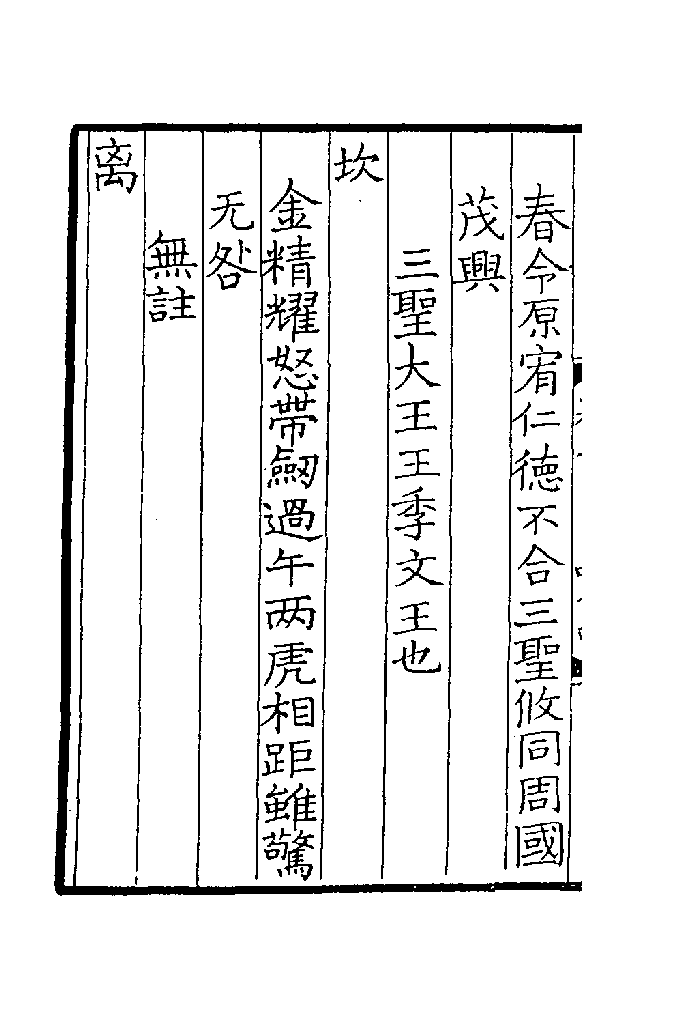 春令原宥仁德不合三聖攸同周國
茂興
三聖大王王季文王也
坎
金精耀怒帶劔過午两虎相距雖驚
无咎
無註
离